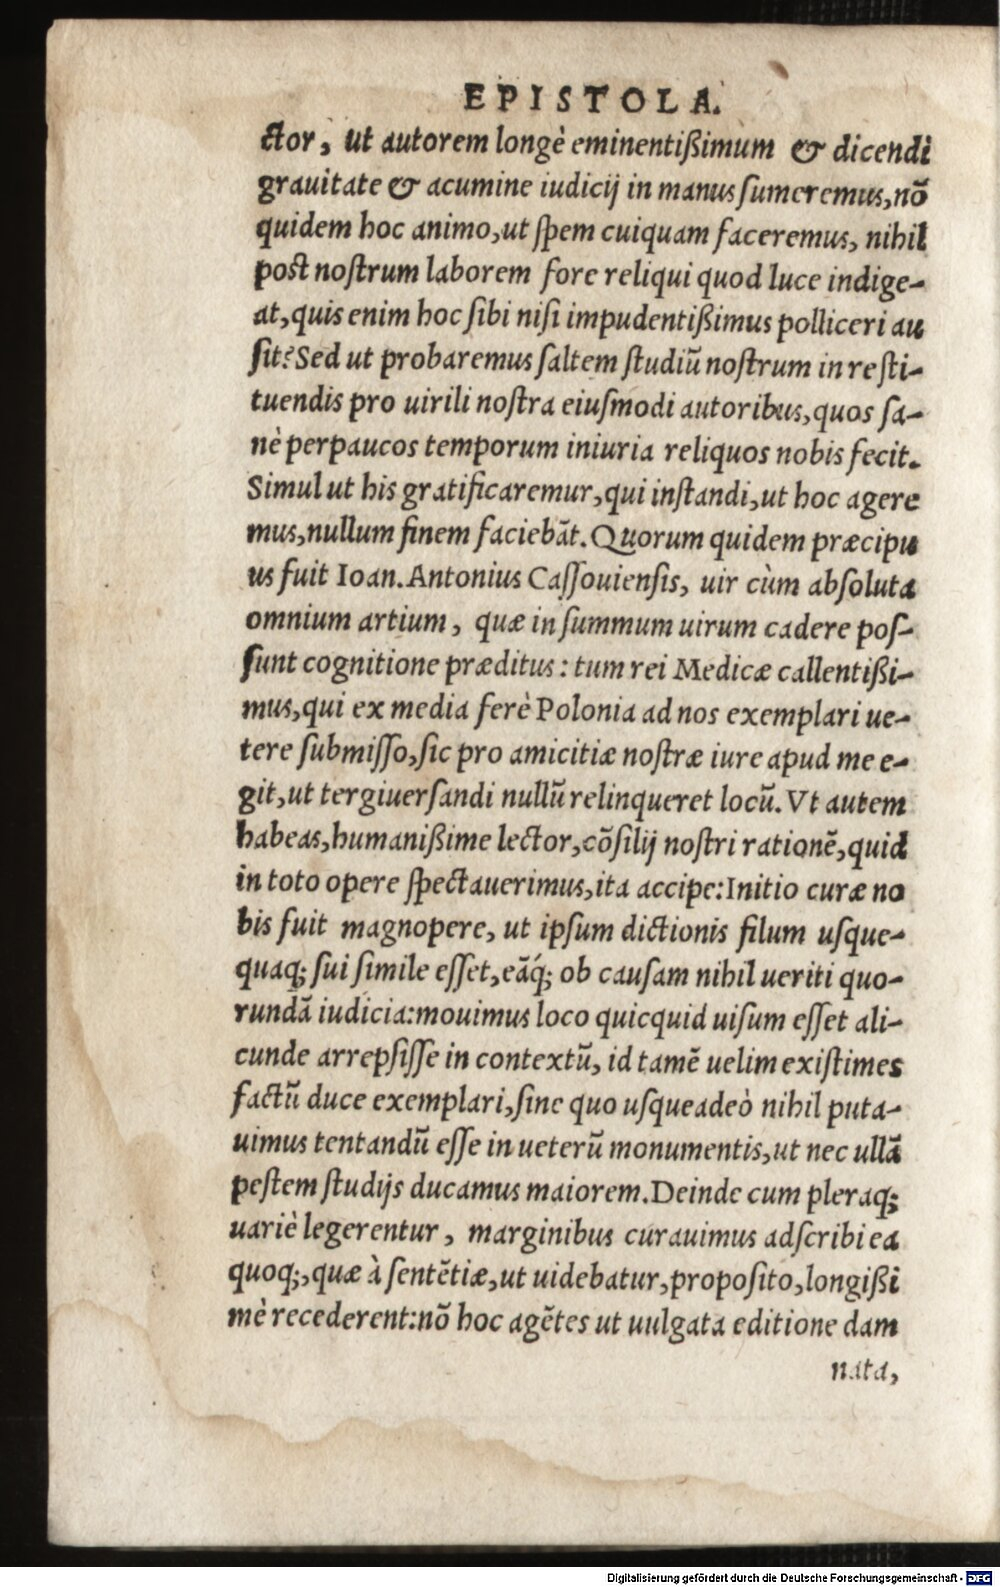 EPISTOLA.
ctor, ut autorem longè eminentißimum & dicendi
grauitate & acumine iudicij in manus ſumeremus, nõ
quidem hoc animo, ut ſpem cuiquam faceremus, nihil
poſt noſtrum laborem fore reliqui quod luce indige-
at, quis enim hoc ſibi niſi impudentißimus polliceri au
ſit? Sed ut probaremus ſaltem ſtudiũ noſtrum in reſti-
tuendis pro uirili noſtra eiuſmodi autoribus, quos ſa-
nè perpaucos temporum iniuria reliquos nobis fecit.
Simul ut his gratificaremur, qui inſtandi, ut hoc agere
mus, nullum finem faciebãt. Quorum quidem præcipu
us fuit Ioan. Antonius Caſſouienſis, uir cùm abſoluta
omnium artium, quæ in ſummum uirum cadere poſ-
ſunt cognitione præditus: tum rei Medicæ callentißi-
mus, qui ex media ferè Polonia ad nos exemplari ue-
tere ſubmiſſo, ſic pro amicitiæ noſtræ iure apud me e-
git, ut tergiuerſandi nullũ relinqueret locũ. Vt autem
habeas, humanißime lector, cõſilij noſtri rationẽ, quid
in toto opere ſpectauerimus, ita accipe: Initio curæ no
bis fuit magnopere, ut ipſum dictionis filum uſque-
quaq; ſui ſimile eſſet, eãq́; ob cauſam nihil ueriti quo-
rundã iudicia: mouimus loco quicquid uiſum eſſet ali-
cunde arrepſiſſe in contextũ, id tamẽ uelim exiſtimes
factũ duce exemplari, ſine quo uſqueadeò nihil puta-
uimus tentandũ eſſe in ueterũ monumentis, ut nec ullã
peſtem ſtudijs ducamus maiorem. Deinde cum pleraq;
uariè legerentur, marginibus curauimus adſcribi ea
quoq;, quæ à ſentẽtiæ, ut uidebatur, propoſito, longißi
mè recederent: nõ hoc agẽtes ut uulgata editione dam
nata,
Digitalisierung gefördert durch die Deutsche Forschungsgemeinschaft - DFG